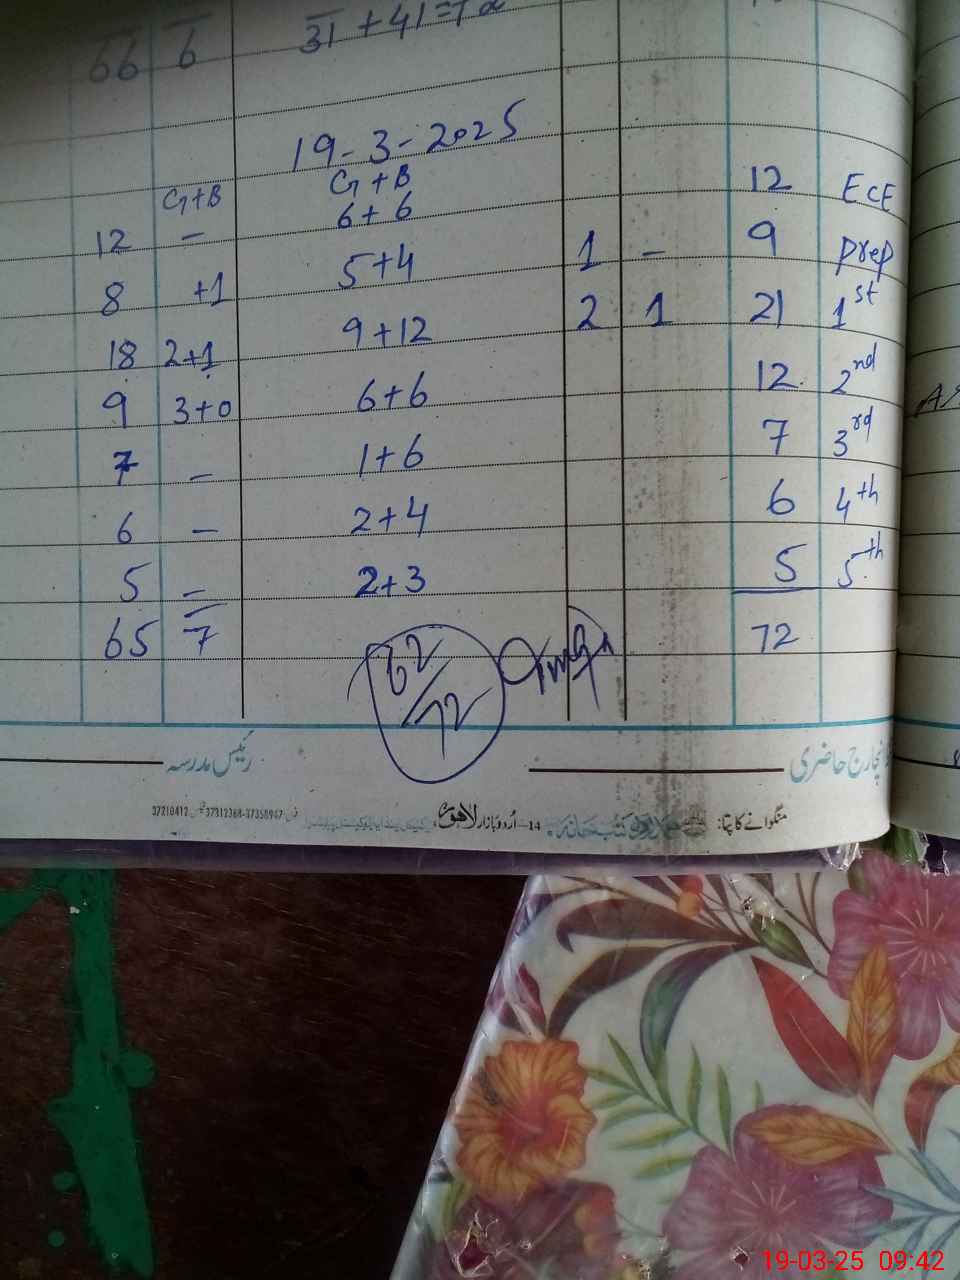 66 6 31 + 41 = 72
19-3-2025
G+B G+B
12 - 6+6 12 ECE
8 +1 5+4 1 - 9 prep
18 2+1 9+12 2 1 21 1st
9 3+0 6+6 12 2nd
7 - 1+6 7 3rd
6 - 2+4 6 4th
5 - 2+3 5 5th
65 7 72
62/72
رئیس مدرسہ
انچارج حاضری
منگوانے کا پتا:
کتب خانہ
14-اُردو بازار لاہور
37312368-37358947
37210412
19-03-25 09:42